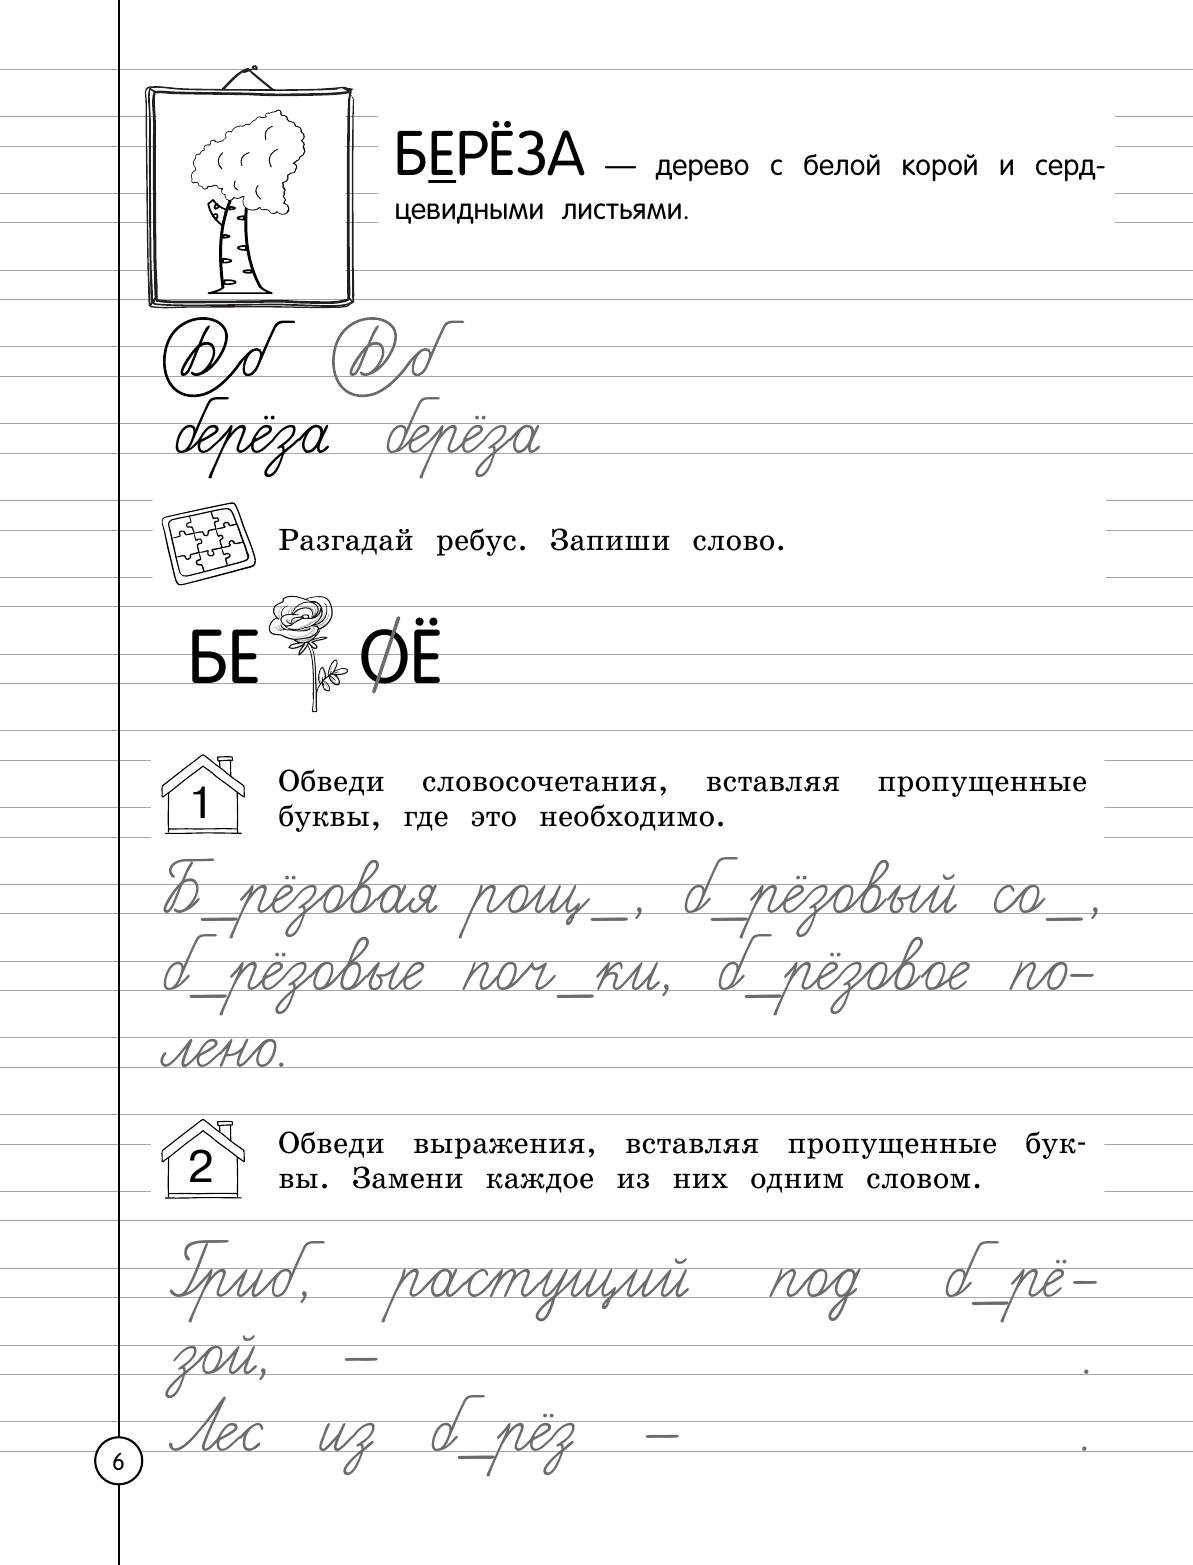 БЕРЁЗА — дерево с белой корой и серд-
цевидными листьями.
Б б Б б
берёза берёза
Разгадай ребус. Запиши слово.
БЕ ОЁ
1
Обведи словосочетания, вставляя пропущенные
буквы, где это необходимо.
Б_рёзовая рощ_, б_рёзовый со_,
б_рёзовые поч_ки, б_рёзовое по-
лено.
2
Обведи выражения, вставляя пропущенные бук-
вы. Замени каждое из них одним словом.
Гриб, растущий под б_рё-
зой, – .
Лес из б_рёз – .
6